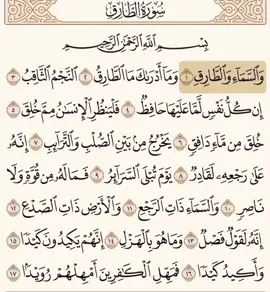 سُورَةُ الطَّارِقِ
بِسْمِ اللَّهِ الرَّحْمَٰنِ الرَّحِيمِ
وَالسَّمَاءِ وَالطَّارِقِ ١ وَمَا أَدْرَاكَ مَا الطَّارِقُ ٢ النَّجْمُ الثَّاقِبُ ٣
إِن كُلُّ نَفْسٍ لَّمَّا عَلَيْهَا حَافِظٌ ٤ فَلْيَنظُرِ الْإِنسَانُ مِمَّ خُلِقَ ٥
خُلِقَ مِن مَّاءٍ دَافِقٍ ٦ يَخْرُجُ مِن بَيْنِ الصُّلْبِ وَالتَّرَائِبِ ٧ إِنَّهُ
عَلَىٰ رَجْعِهِ لَقَادِرٌ ٨ يَوْمَ تُبْلَى السَّرَائِرُ ٩ فَمَا لَهُ مِن قُوَّةٍ وَلَا
نَاصِرٍ ١٠ وَالسَّمَاءِ ذَاتِ الرَّجْعِ ١١ وَالْأَرْضِ ذَاتِ الصَّدْعِ ١٢
إِنَّهُ لَقَوْلٌ فَصْلٌ ١٣ وَمَا هُوَ بِالْهَزْلِ ١٤ إِنَّهُمْ يَكِيدُونَ كَيْدًا ١٥
وَأَكِيدُ كَيْدًا ١٦ فَمَهِّلِ الْكَافِرِينَ أَمْهِلْهُمْ رُوَيْدًا ١٧